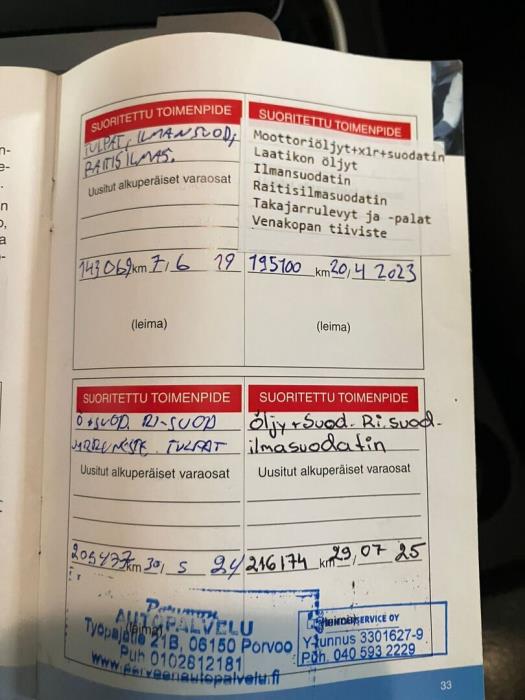 SUORITETTU TOIMENPIDE
TULPAT, ILMANSUOD,
RAITISILMAS.
Uusitut alkuperäiset varaosat
143069 km 7, 6 19
(leima)
SUORITETTU TOIMENPIDE
Moottoriöljyt+x1r+suodatin
Laatikon öljyt
Ilmansuodatin
Raitisilmasuodatin
Takajarrulevyt ja -palat
Venakopan tiiviste
195100 km 20, 4 2023
(leima)
SUORITETTU TOIMENPIDE
Ö+SUOD. RI-SUOD
JARRUNESTE. TULPAT
Uusitut alkuperäiset varaosat
205437 km 30, 5 24
(leima)
AUTOPALVELU
Työpajatie 21B, 06150 Porvoo
Puh 0102612181
www.porvoonautopalvelu.fi
SUORITETTU TOIMENPIDE
Öljy+Suod. Ri.suod-
ilmasuodatin
Uusitut alkuperäiset varaosat
216174 km 29, 07 25
(leima)
SERVICE OY
Y-tunnus 3301627-9
Puh. 040 593 2229
33